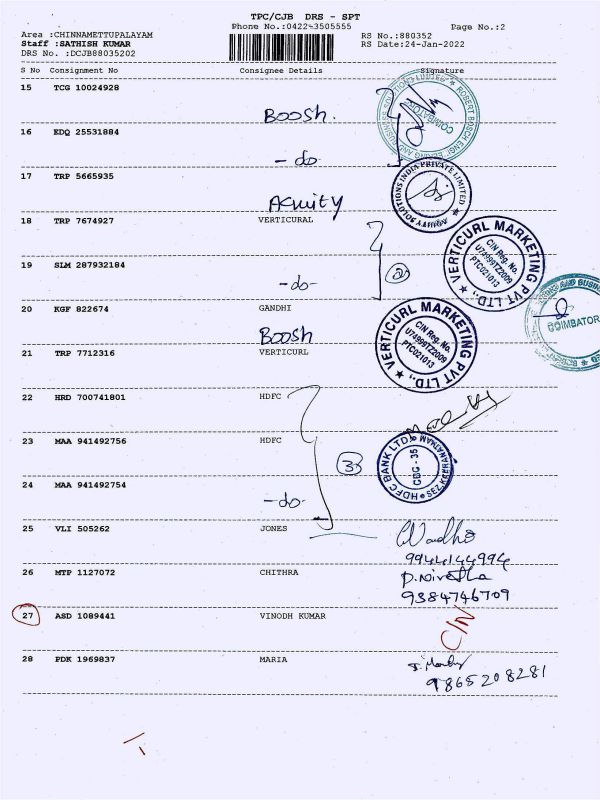 TPC/CJB DRS - SPT
Phone No.:0422-3505555 Page No.:2
Area :CHINNAMETTUPALAYAM RS No.:880352
Staff :SATHISH KUMAR RS Date:24-Jan-2022
DRS No. :DCJB88035202
S No Consignment No Consignee Details Signature
15 TCG 10024928
BOOSh.
COIMBATORE
16 EDQ 25531884
- do
17 TRP 5665935
ACUITY SOLUTIONS INDIA PRIVATE LIMITED
Acuity
18 TRP 7674927 VERTICURAL
VERTICURL MARKETING PVT LTD.,
CIN Reg. No.
U74999TZ2009
PTC021013
19 SLM 287932184
-do-
2
20 KGF 822674 GANDHI
BOOSh
COIMBATOR
21 TRP 7712316 VERTICURL
VERTICURL MARKETING PVT LTD.,
CIN Reg. No.
U74999TZ2009
PTC021013
22 HRD 700741801 HDFC
23 MAA 941492756 HDFC
3
HDFC BANK LTD
CBC - 35
24 MAA 941492754
-do-
25 VLI 505262 JONES
9944144994
26 MTP 1127072 CHITHRA
D.Nivetha
9384746709
27 ASD 1089441 VINODH KUMAR
C/N
28 PDK 1969837 MARIA
9865208281